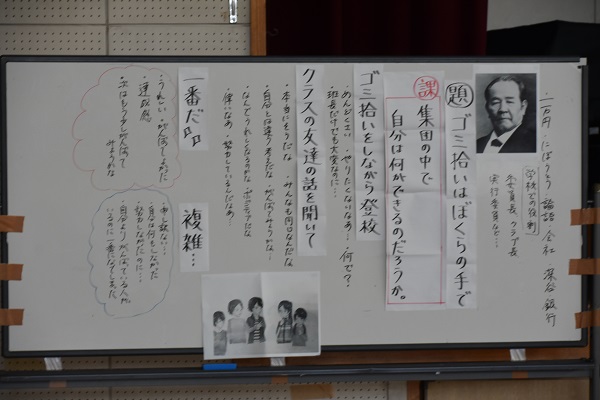 一万円 にぼうとう 論語 会社 深谷 銀行
学校での役割
委員長 クラブ長
実行委員など
題 ゴミ拾いはぼくらの手で
課 集団の中で
自分は何ができるのだろうか。
ゴミ拾いをしながら登校
・めんどくさい・やりたくないなあ…・何で?
・班長だけでも大変なのに…
クラスの友達の話を聞いて
・本当にそうだな みんなも同じなんだな
・自分とは違う考えだな・がんばってみようかな…
・なんでうれしくなるのかな ポジティブだな
・偉いなあ・努力しているんだなあ…
一番だ!!
・うれしい・がんばってよかった
・達成感
・次はもう少しがんばって
みようかな
複雑…
・申し訳ない…
・自分は何もしなかった
・努力しなかったのに…
・自分よりがんばっている人が
いるのに一番になってしまった